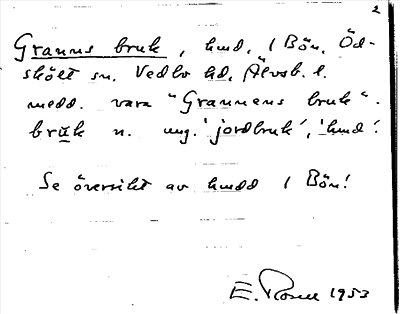 2
Granns bruk, hmd. 1 Bön, Öd-
skölt sn. Vedbo hd. Älvsb. l.
medd. vara "Grannens bruk".
bruk n. ung. 'jordbruk', 'hmd'.
Se översikt av hmdd 1 Bön!
E. Rosell 1953